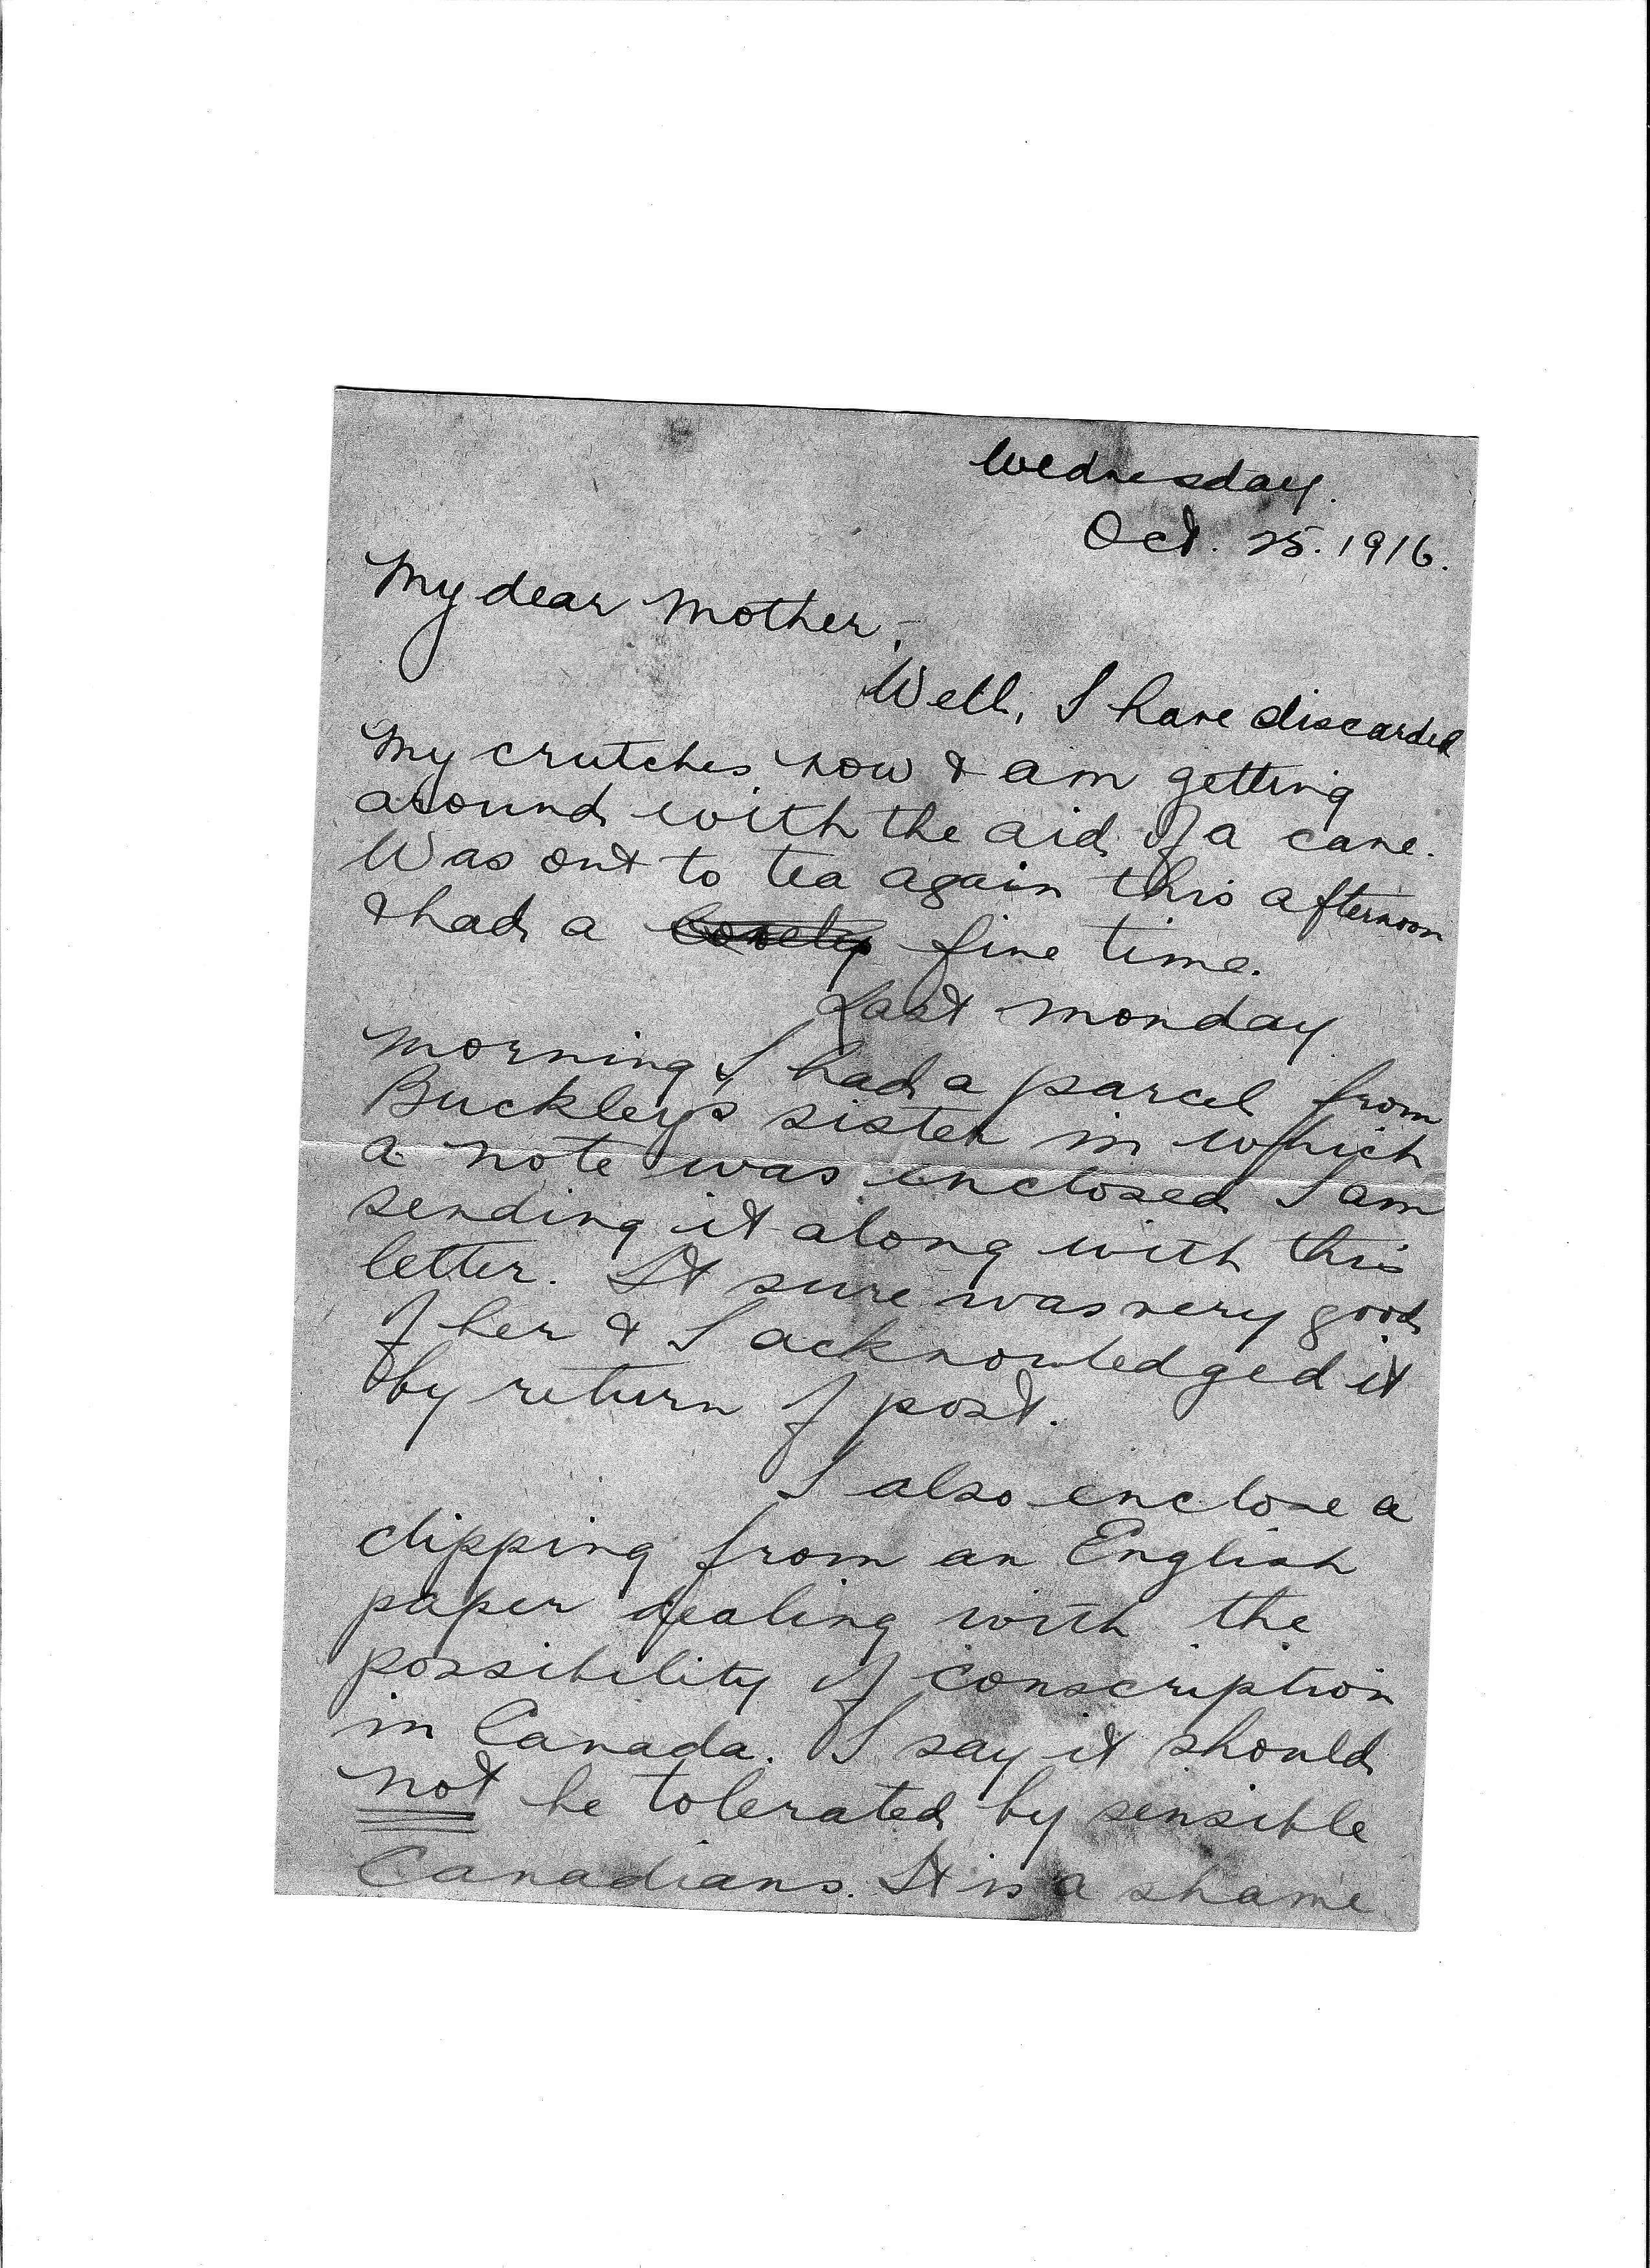 Wednesday.
Oct. 25. 1916.
My dear Mother,-
Well, I have discarded
my crutches now & am getting
around with the aid of a cane.
Was out to tea again this afternoon
& had a lovely fine time.
Last Monday
morning I had a parcel from
Buckleys sister in which
a note was enclosed I am
sending it along with this
letter. It sure was very good
of her & I acknowledged it
by return of post.
I also enclose a
clipping from an English
paper dealing with the
possibility of conscription
in Canada. I say it should
not be tolerated by sensible
Canadians. It is a shame